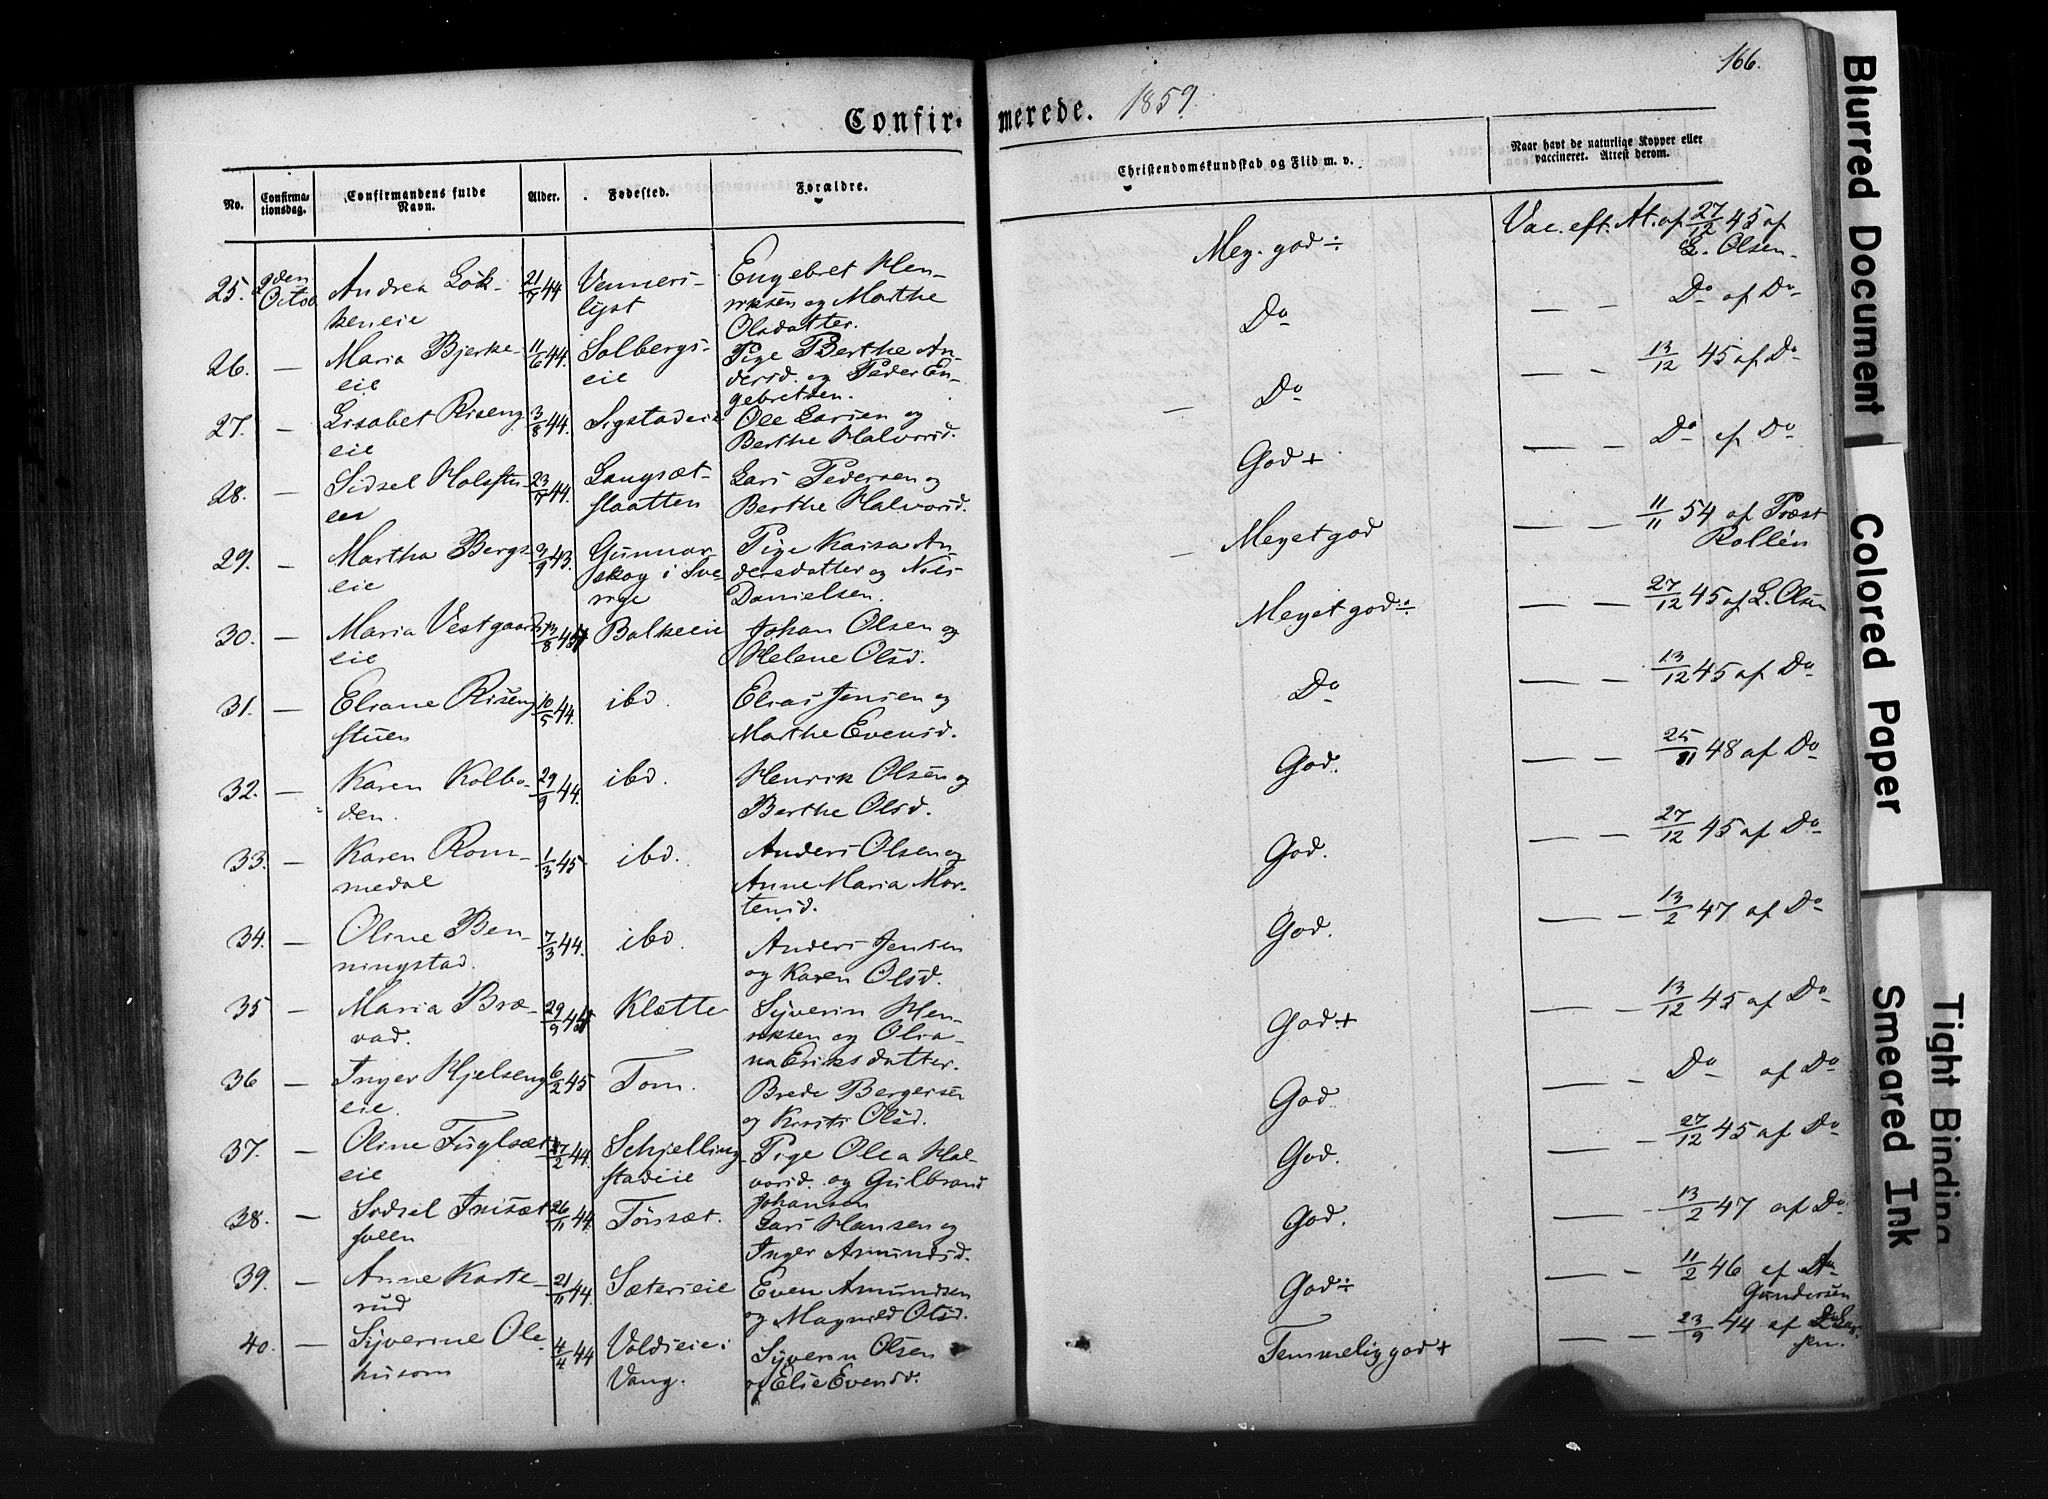 166.
Confir- merede. 1859.
No. Confirmationsdag. Confirmandens fulde Navn. Alder. Fødested. Forældre. Christendomskundskab og Flid m. v. Naar havt de naturlige Kopper eller vaccineret. Attest derom.
25. 2den Octob Andrea Løkkeneie 21/7 44 Venneriljst Engebret Henriksen og Marthe Olsdatter. Meg. god ÷ Vac. eft. At. af 27/12 45 af L. Olsen
26. — Maria Bjerkeeie 11/6 44. Solbergseie Pige Berthe Andersd. og Peder Engebretsen. Do — — Do af Do
27. — Lisabet Risengeie 3/8 44. Sigstadeie Ole Larsen og Berthe Halvorsd. — Do — — 13/12 45 af Do
28. — Sidsel Holsfter 23/7 44. Langsætslaatten Lars Pedersen og Berthe Halvorsd. God + — — Do af Do
29. — Martha Bergseie 3/9 43. Gunnarskog i Sverige Pige Kaisa Andersdatter og Nils Danielsen. — Meget god — — 11/11 54 af Præst Rollén
30. — Maria Vestgaardseie 13/8 44 Balkeeie Johan Olsen og Helene Olsd. Meget god ÷ — — 27/12 45 af L. Olsen
31. — Eliane Risengstuen 10/5 44. ibd. Elias Jensen og Marthe Evensd. Do — — 13/12 45 af Do
32. — Karen Kolboden. 29/9 44. ibd. Henrik Olsen og Berthe Olsd. God. — — 25/11 48 af Do
33. — Karen Rommedal 1/3 45 ibd. Anders Olsen og Anne Maria Mortensd. God. — — 27/12 45 af Do
34. — Oline Benningstad. 7/3 44. ibd. Anders Jensen og Karen Olsd. God. — — 13/2 47 af Do
35 — Maria Brævad. 29/9 44 Klætte Syverin Henriksen og Oliana Eriksdatter. God + — — 13/12 45 af Do
36 — Inger Hjelsengeie. 6/2 45 Tom. Brede Bergersen og Kersti Olsd. God — — Do af Do
37. — Oline Fuglsæteie 27/2 44. Schjellingstadeie Pige Olea Halvorsd. og Gulbrand Johansen God. — — 27/12 45 af Do
38. — Sidsel Inisæt 26/11 44. Tønsæt. Lars Hansen og Inger Amundsd. God. — — 13/2 47 af Do
39. — Anne Karterud 21/11 44. Sæterieie Even Amundsen og Magnild Olsd. God ÷ — — 11/2 46 af A. Gundersen
40. — Syverine Olehusom 4/4 44 Voldseie i Vang. Syverin Olsen og Elie Evensd. Temmelig god + — — 23/9 44 af
Blurred Document
Colored Paper
Tight Binding
Smeared Ink